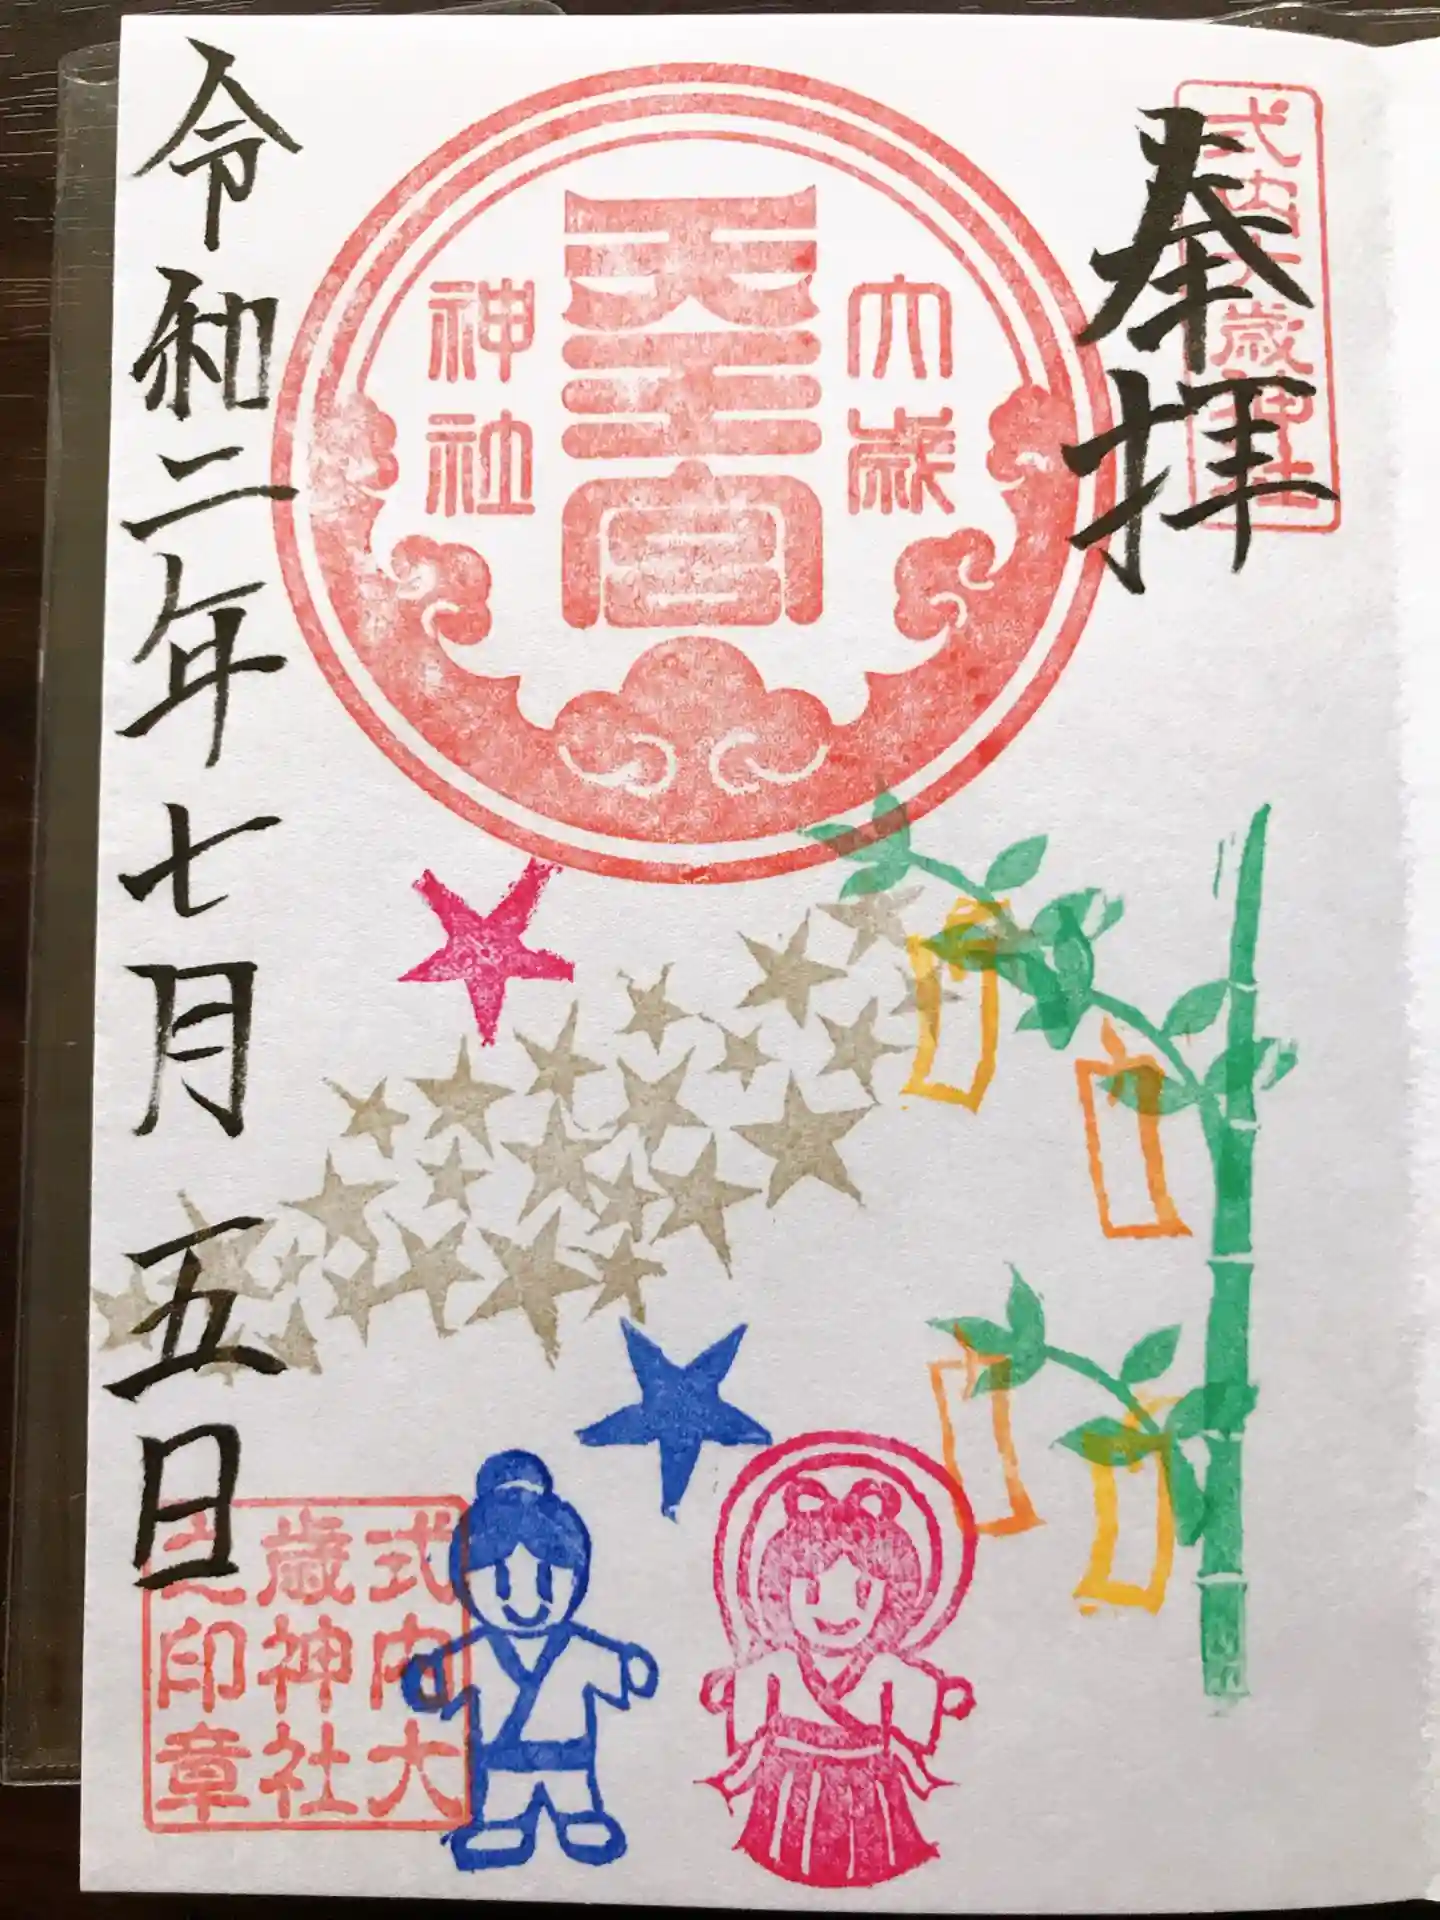 奉拝
式内大歳神社
大歳
天王宮
神社
令和二年七月五日
式内大
歳神社
之印章